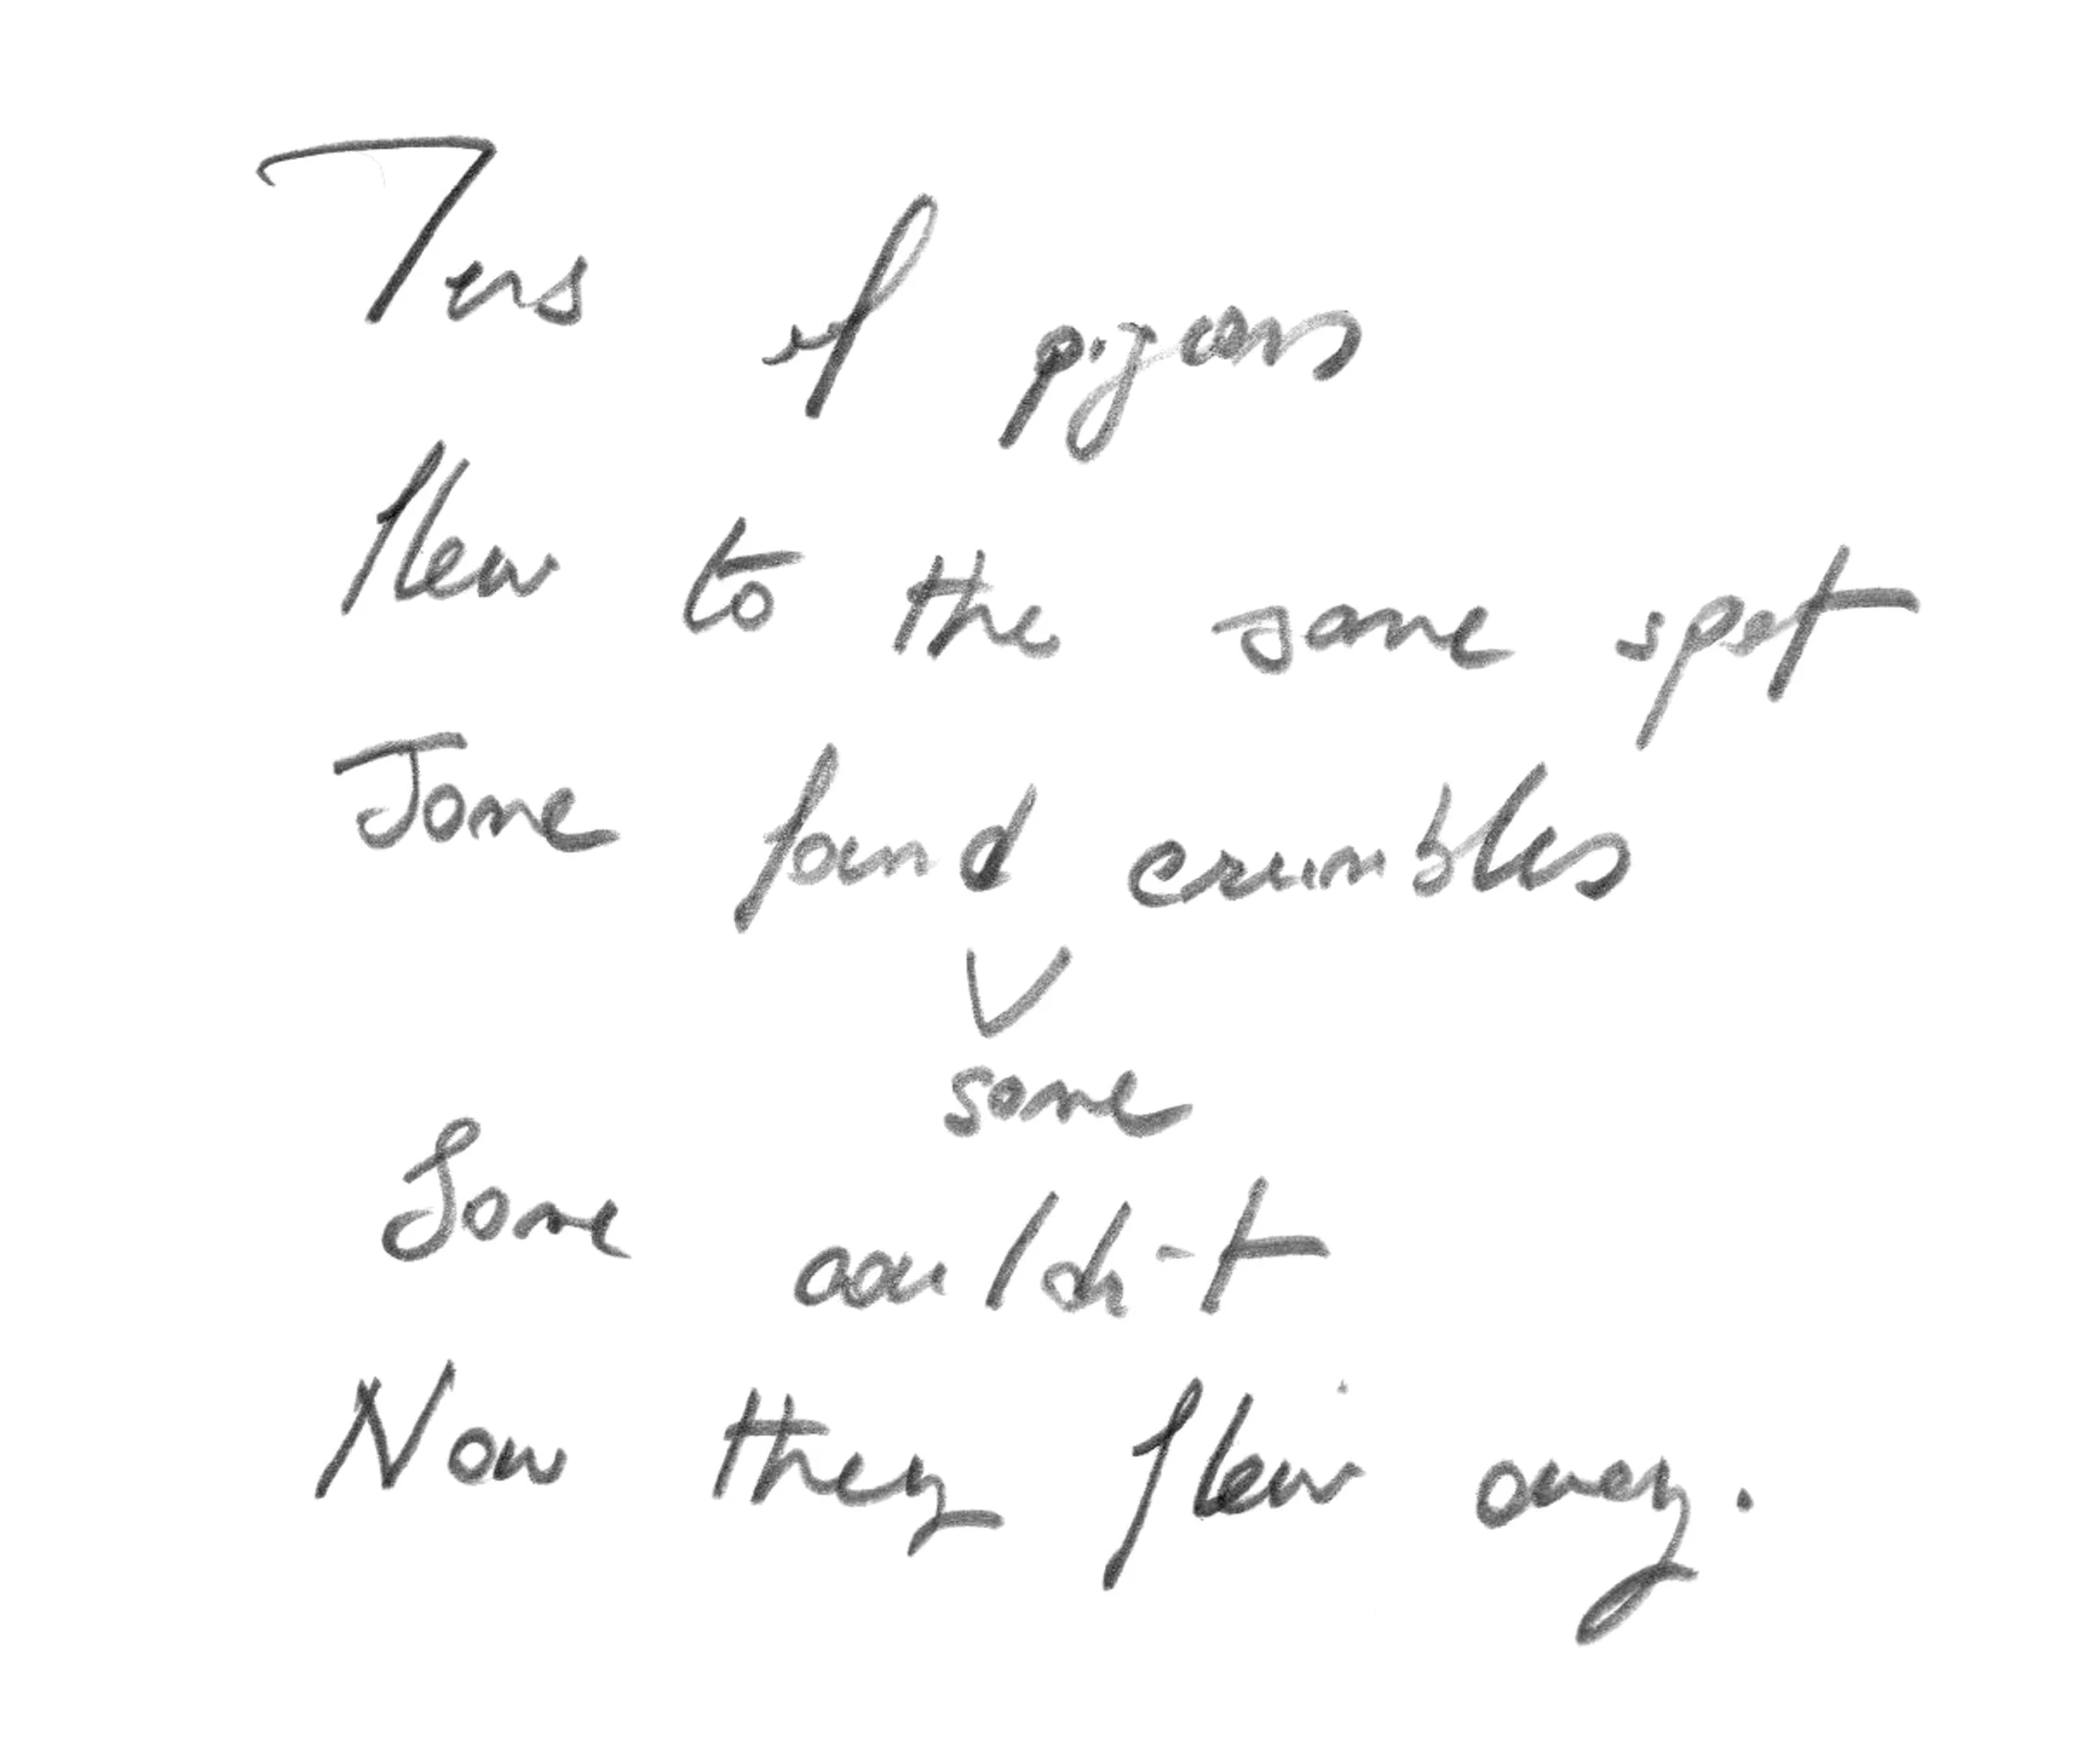 Tens of pigeons
flew to the same spot
Some found crumbles
V
some
Some couldn't
Now they flew away.